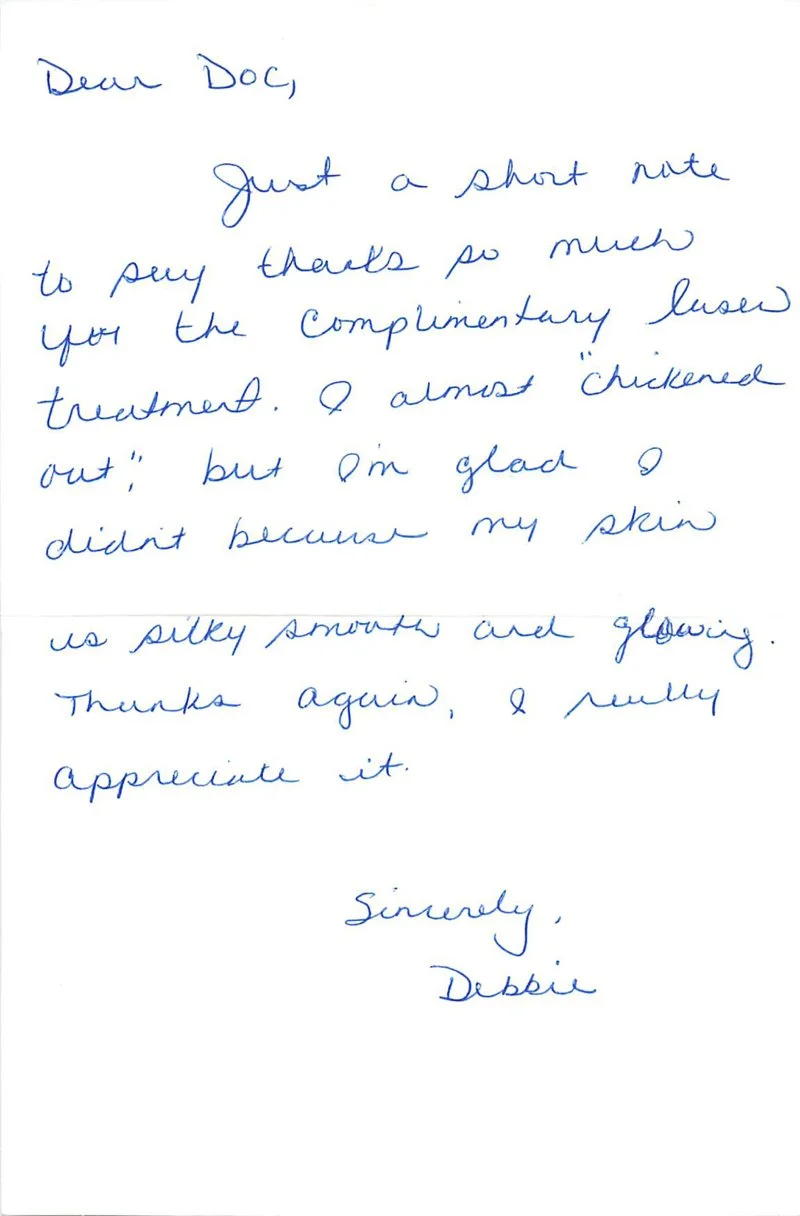 Dear Doc,
Just a short note
to say thanks so much
for the complimentary laser
treatment. I almost "chickened
out", but I'm glad I
didn't because my skin
is silky smooth and glowing.
Thanks again, I really
appreciate it.
Sincerely,
Debbie